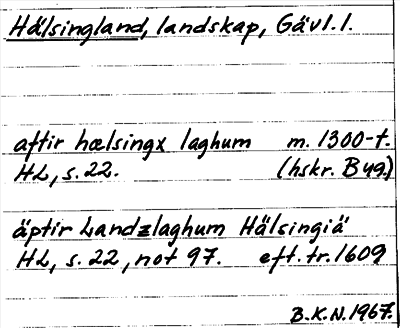 Hälsingland, landskap, Gävl.l.
aftir hælsingx laghum m. 1300-t.
HL, s. 22. (hskr. B yg.)
äptir Landzlaghum Hälsingiä
HL, s. 22, not 97. eft. tr. 1609
B.K.N. 1967.